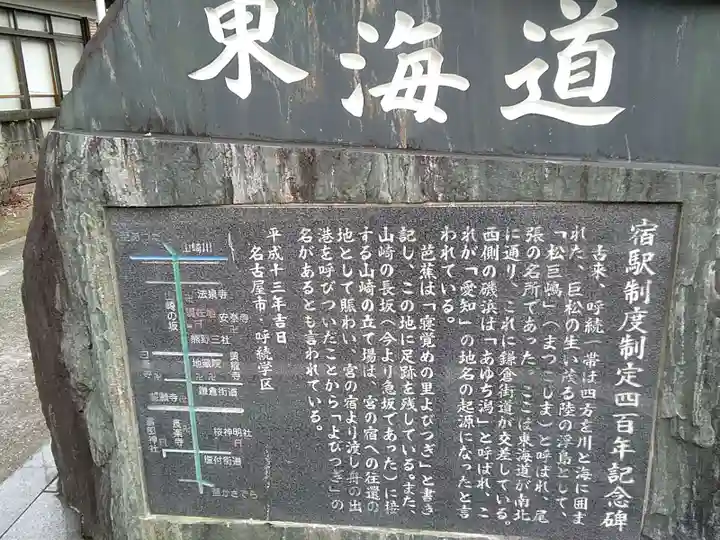 東海道
宿駅制度制定四百年記念碑
古来、呼続一帯は四方を川と海に囲ま
れた、巨松の生い茂る陸の浮島として、
「松巨嶋」(まつこしま)と呼ばれ、尾
張の名所であった。ここは東海道が南北
に通り、これに鎌倉街道が交差している。
西側の磯浜は「あゆち潟」と呼ばれ、こ
れが「愛知」の地名の起源になったと言
われている。
芭蕉は「寝覚めの里よびつぎ」と書き
記し、この地に足跡を残している。また、
山崎の長坂(今より急坂であった)に接
する山崎の立て場は、宮の宿への往還の
地として賑わい、宮の宿より渡し舟の出
港を呼びついだことから「よびつぎ」の
名があるとも言われている。
平成十三年吉日
名古屋市・呼続学区
至あつた
山崎川
法泉寺
山崎の坂
現在地
安泰寺
熊野三社
地蔵院
誓願寺
鎌倉街道
長楽寺
桜神明社
富部神社
塩付街道
至かさでら